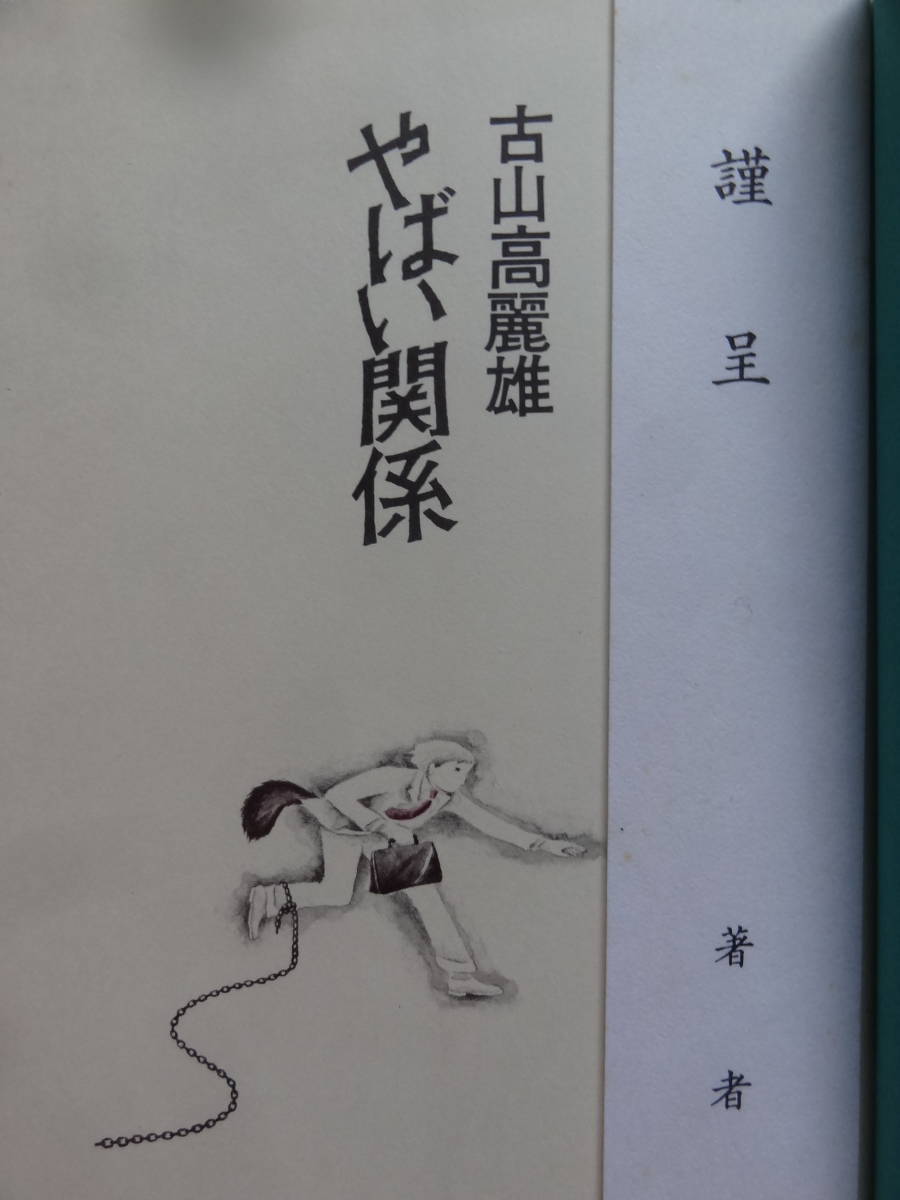 謹呈
著者
古山高麗雄
やばい関係